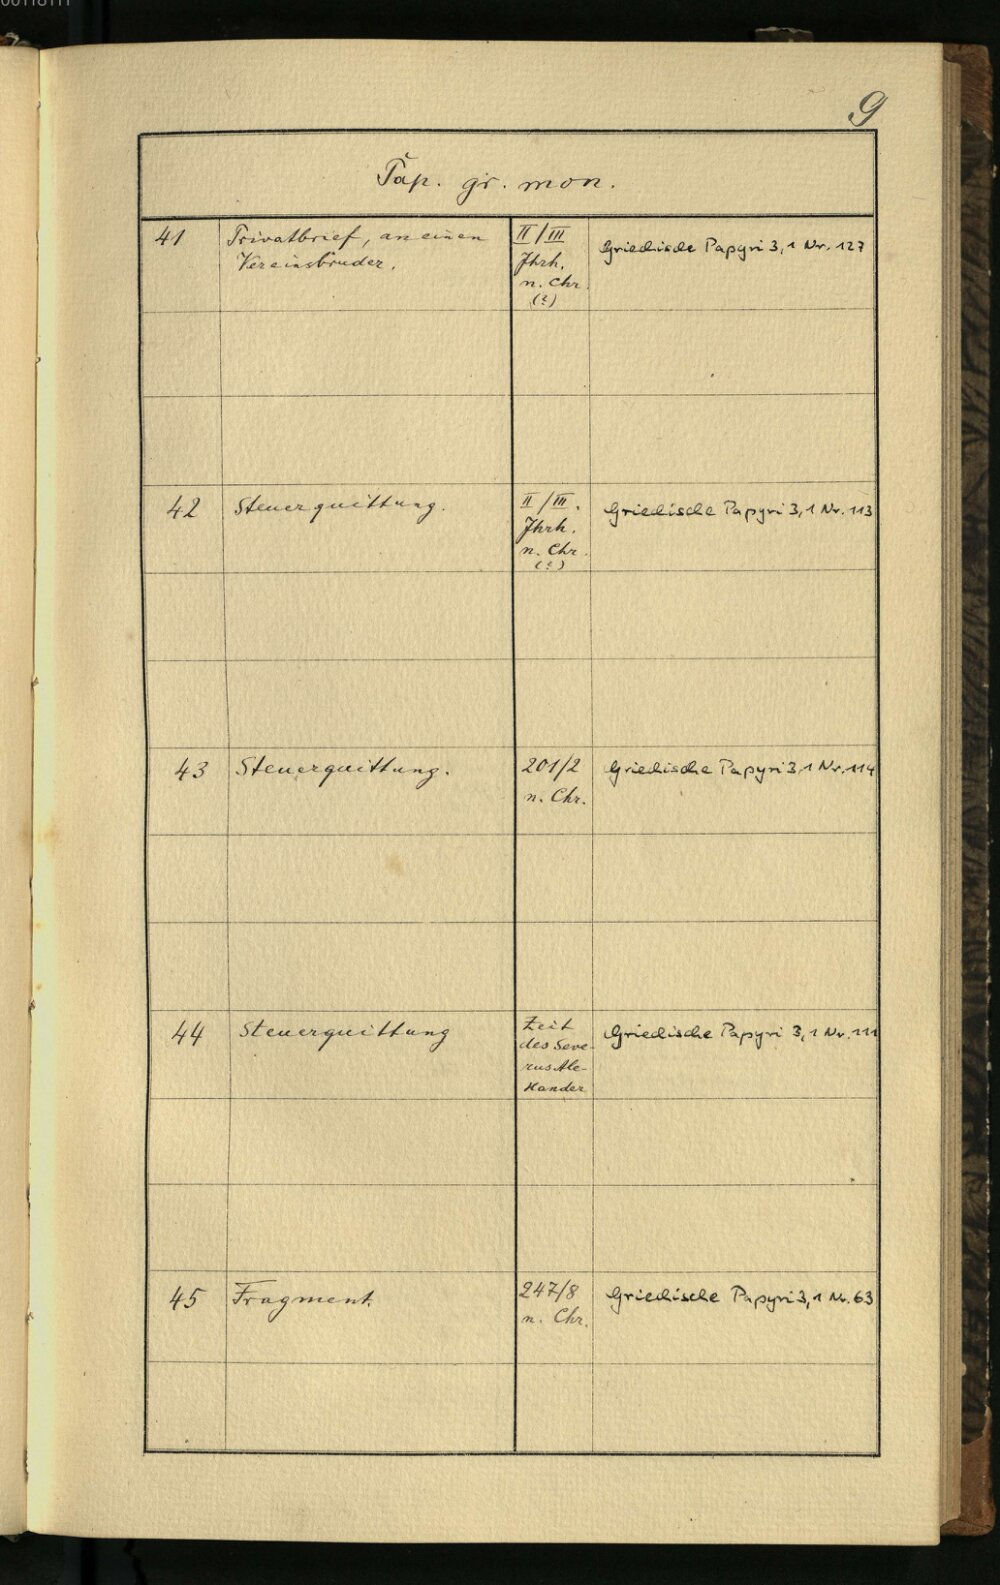 00118111
9
Pap. gr. mon.
41
Privatbrief, an einen
Vereinsbruder.
II/III
Jhrh.
n. Chr.
(?)
Griechische Papyri 3, 1 Nr. 127
42
Steuerquittung.
II/III.
Jhrh.
n. Chr.
(?)
Griechische Papyri 3, 1 Nr. 113
43
Steuerquittung.
201/2
n. Chr.
Griechische Papyri 3, 1 Nr. 114
44
Steuerquittung
Zeit
des Seve-
rus Ale-
xander
Griechische Papyri 3, 1 Nr. 111
45
Fragment.
247/8
n. Chr.
Griechische Papyri 3, 1 Nr. 63